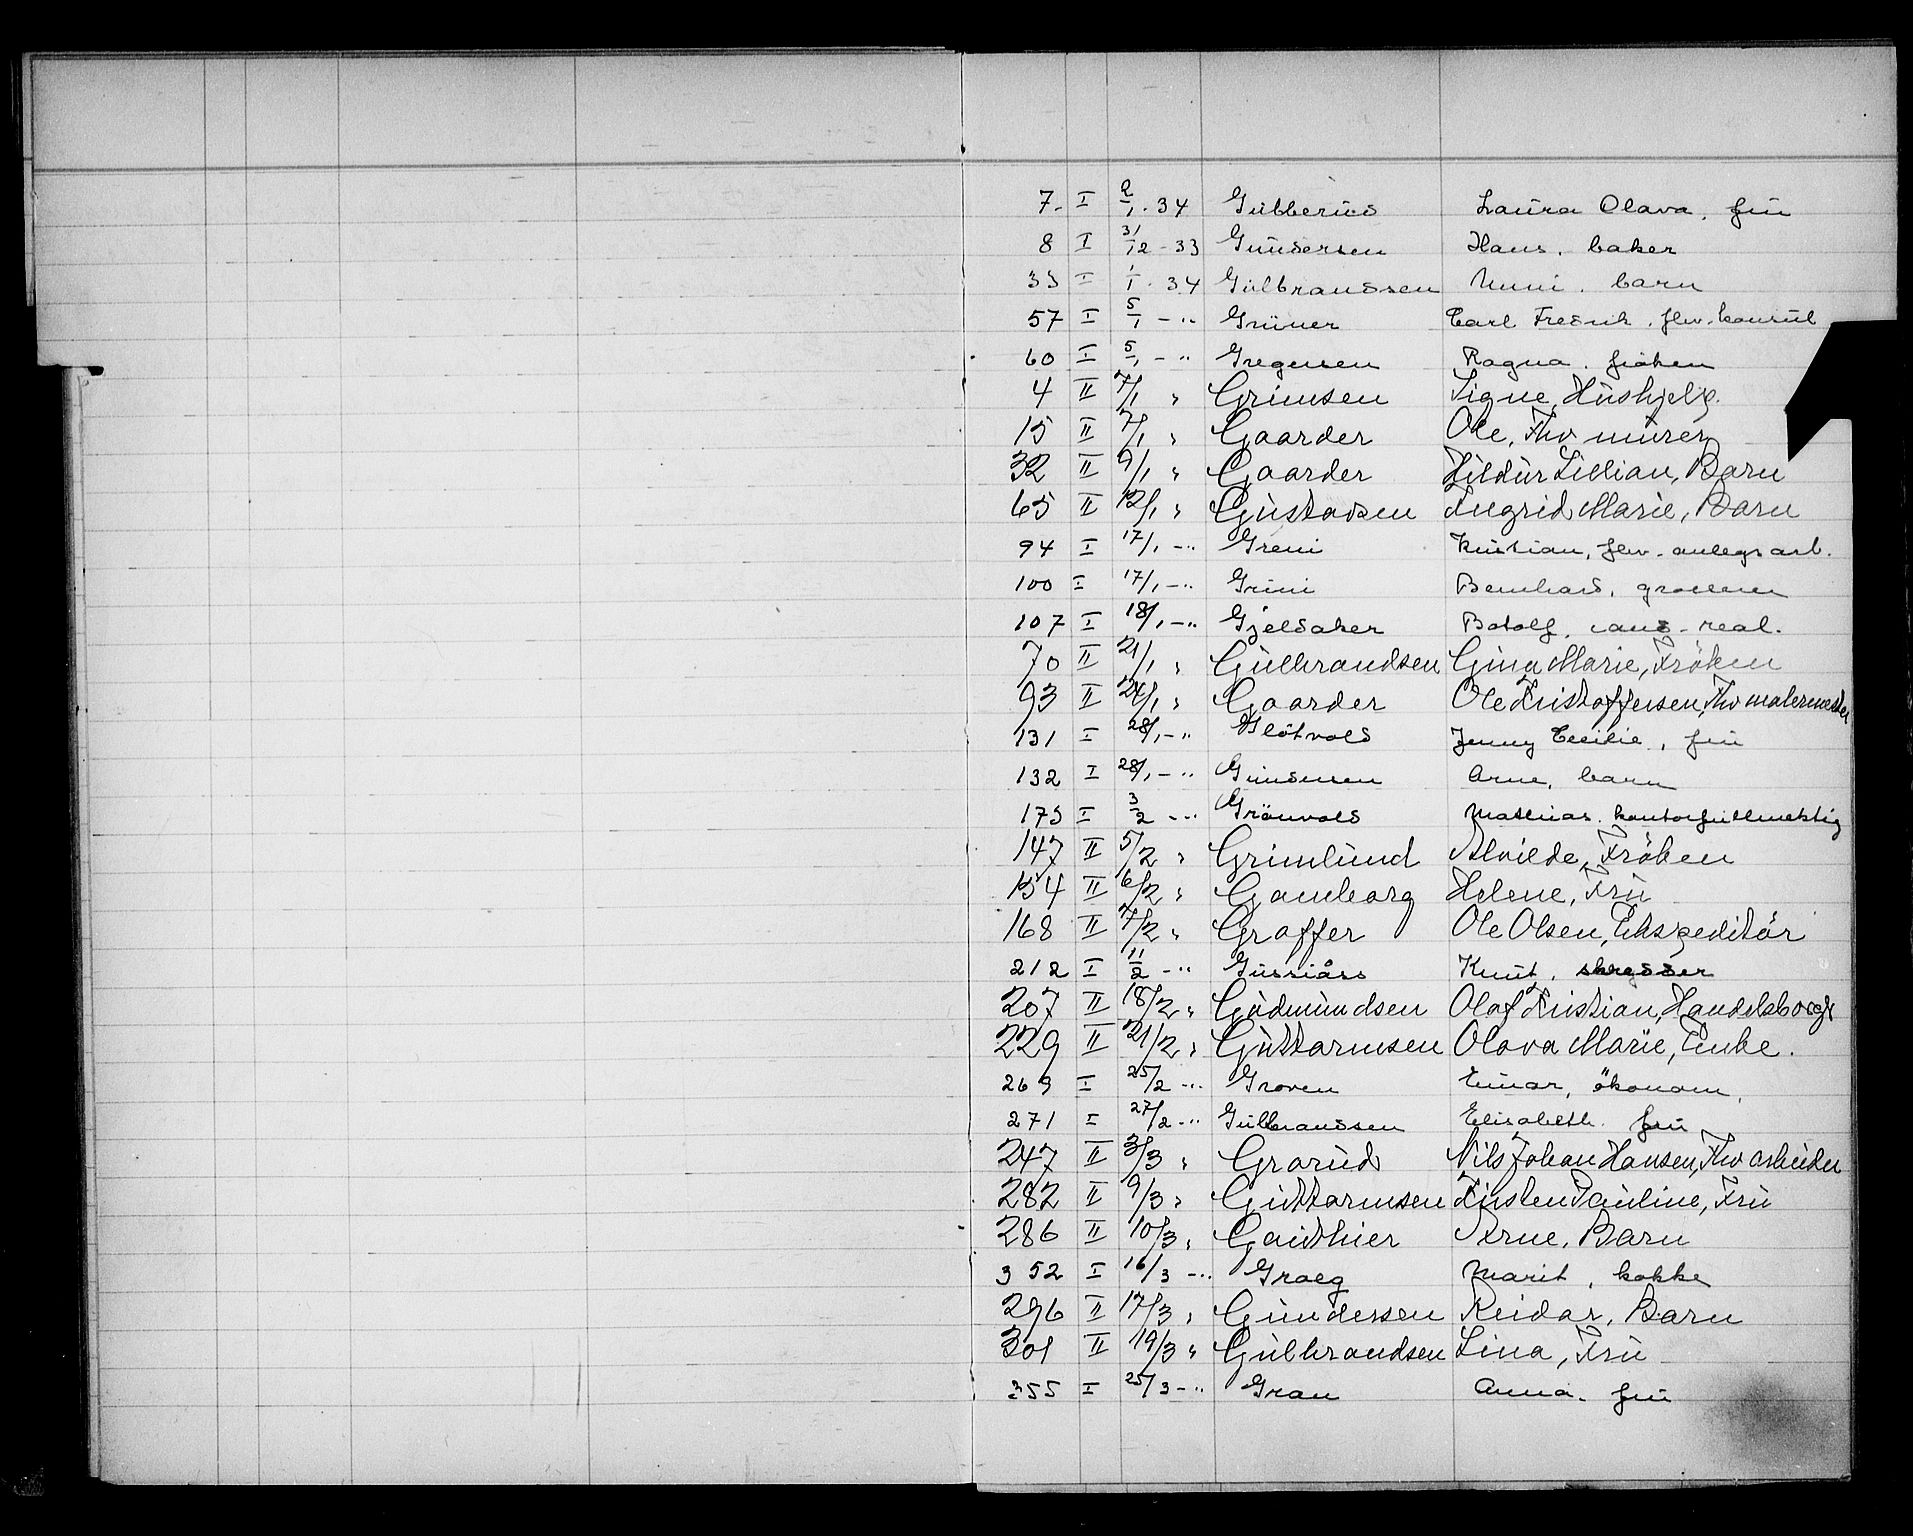 7. I 2/1. 34 Gulberud Laura Olava. fru
8 I 31/12 - 33 Gundersen Hans. baker
33 I 1/1. 34 Gulbrandsen Unni. barn
57 I 5/1 - " Grüner Carl Fredrik. fhv. konsul
60 I 5/1 - " Gregersen Ragna. frøken
4 II 7/1 " Grimsen Signe, Hushjelp.
15 II 7/1 " Gaarder Ole, Fhv murer
32 II 9/1 " Gaarder Hildur Lillian, Barn
65 II 12/1 " Gustavsen Ingrid Marie, Barn
94 I 17/1 - " Greni Kristian, fhv. anlegsarb.
100 I 17/1 - " Grini Bernhard, grosserer
107 I 18/1 - " Gjelsaker Botolf. cand. real.
70 II 21/1 " Gulbrandsen Gina Marie, Fröken
93 II 24/1 " Gaarder Ole Kristoffersen, Fhv malermester
131 I 28/1 - " Glötvold Jenny Cecilie, fru
132 I 28/1 - " Gundersen Arne, barn
175 I 3/2 - " Grönvold Mathias. kontorfullmektig
147 II 5/2 " Grimlund Alvilde, Fröken
154 II 6/2 " Gamborg Helene, Fru
168 II 7/2 " Graffer Ole Olsen, Ekspeditör
212 I 11/2 - " Gussiås Knut, skredder
207 II 18/2 " Gudmundsen Olaf Kristian, Handelsborgr
229 II 21/2 " Guttormsen Olava Marie, Enke.
269 I 25/2 - " Groven Einar, ökonom.
271 I 27/2 - " Gulbrandsen Elisabeth. fru
247 II 3/3 " Grorud Nils Johan Hansen, Fhv arbeider
282 II 9/3 " Guttormsen Kirsten Pauline, Fru
286 II 10/3 " Gauthier Arne, Barn
352 I 16/3 - " Graeg Marit, kokke
296 II 17/3 " Gundersen Reidar, Barn
301 II 19/3 " Gulbrandsen Lina, Fru
355 I 25/3 - " Gran Anna. fru